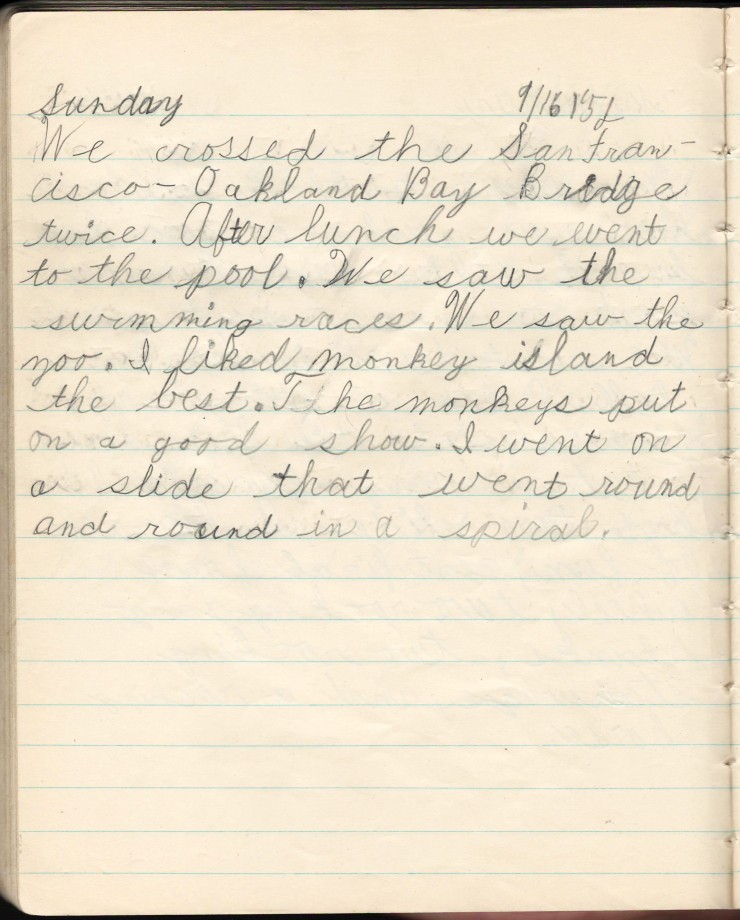 Sunday 9/16 1'51
We crossed the San Fran-
cisco-Oakland Bay Bridge
twice. After lunch we went
to the pool. We saw the
swimming races. We saw the
zoo. I liked monkey island
the best. The monkeys put
on a good show. I went on
a slide that went round
and round in a spiral.